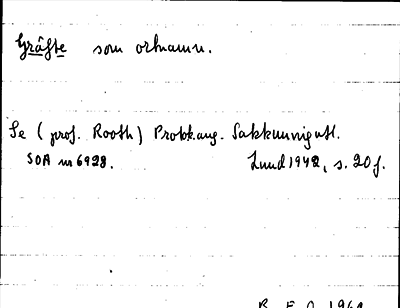 Gräfte som ortnamn.
Se (prof. Rooth) Protok. ang. Sakkunnigutl.
SOA m 6928. Lund 1942, s. 20 f.
B. E. O. 1969